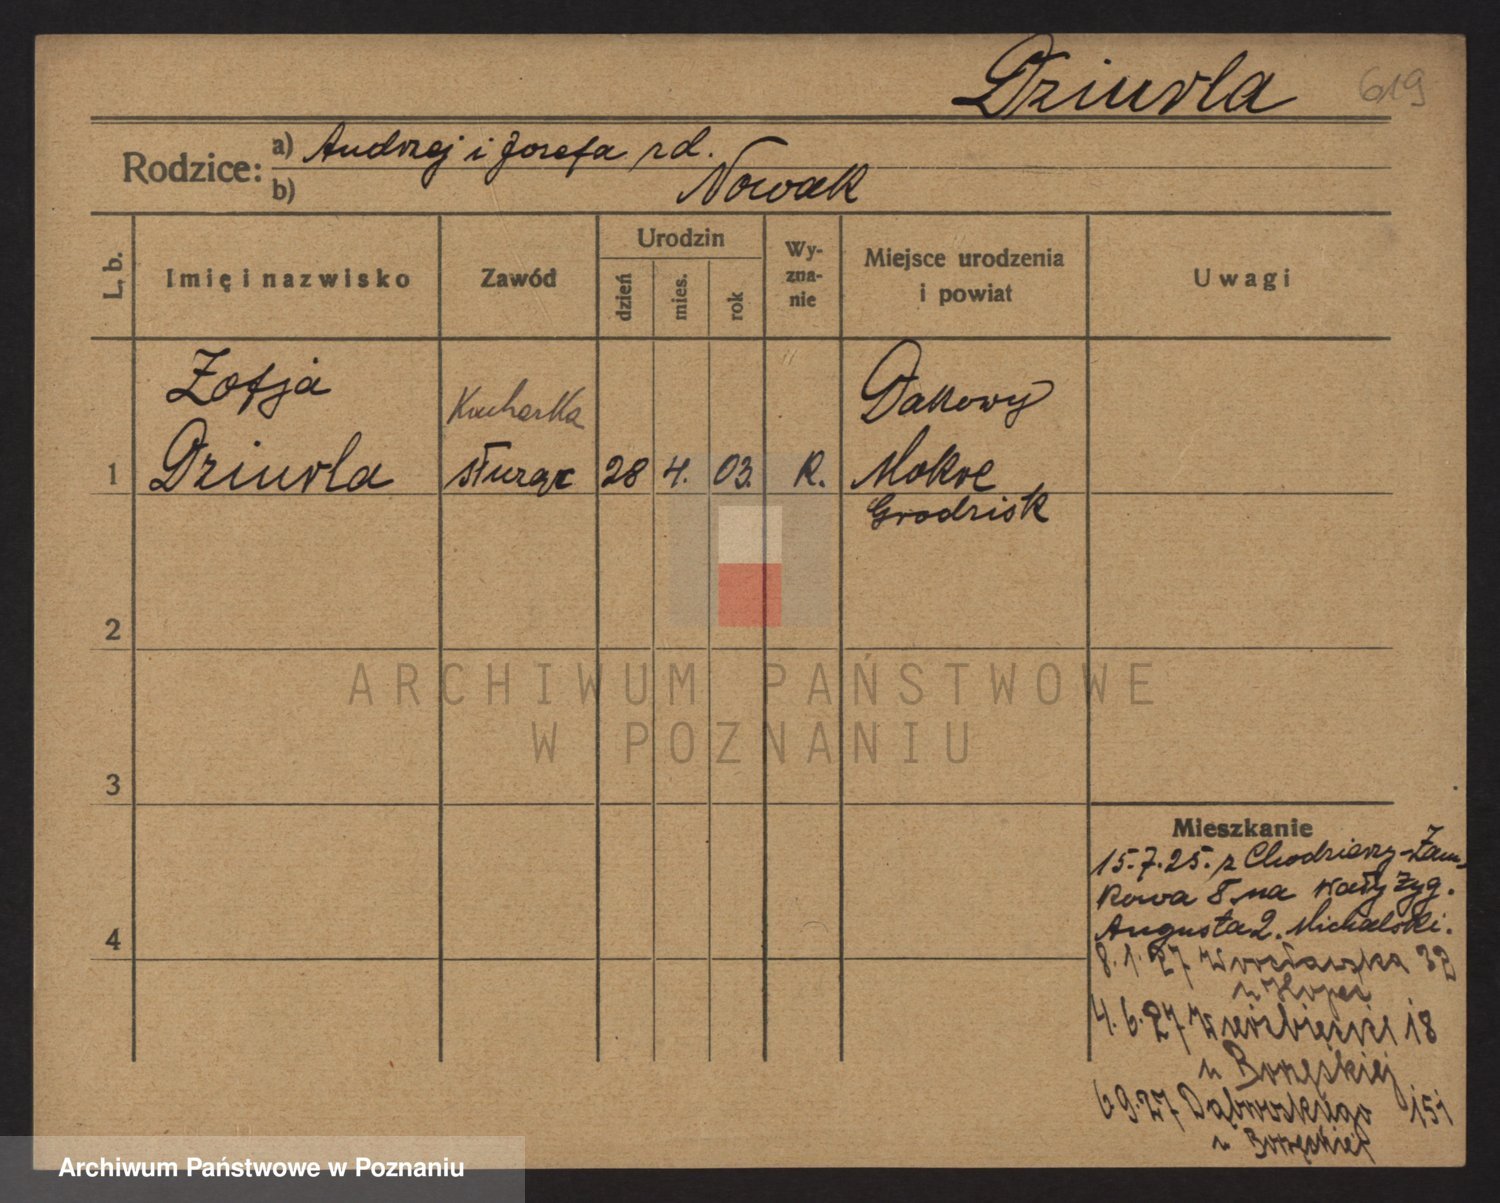 Dziurla
619
Rodzice:
a) Andrzej i Józefa rd.
b) Nowak
L. b.
Imię i nazwisko
Zawód
Urodzin
dzień
mies.
rok
Wy-
zna-
nie
Miejsce urodzenia
i powiat
Uwagi
Zofja
Kucharka
Dakowy
1 Dziurla służąc 28 4. 03. R. Mokre
Grodzisk
2
3
4
ARCHIWUM PAŃSTWOWE
W POZNANIU
Mieszkanie
15.7.25. z Chodzieży-Zam-
kowa 8 na Wały Zyg.
Augusta 2. Michalski.
8.1.27 Wrocławska 32
u
4.6.27 Wierzbięcice 18
u Borzęskiej
6 9.27 Dąbrowskiego 151
u Borzęskiej
Archiwum Państwowe w Poznaniu